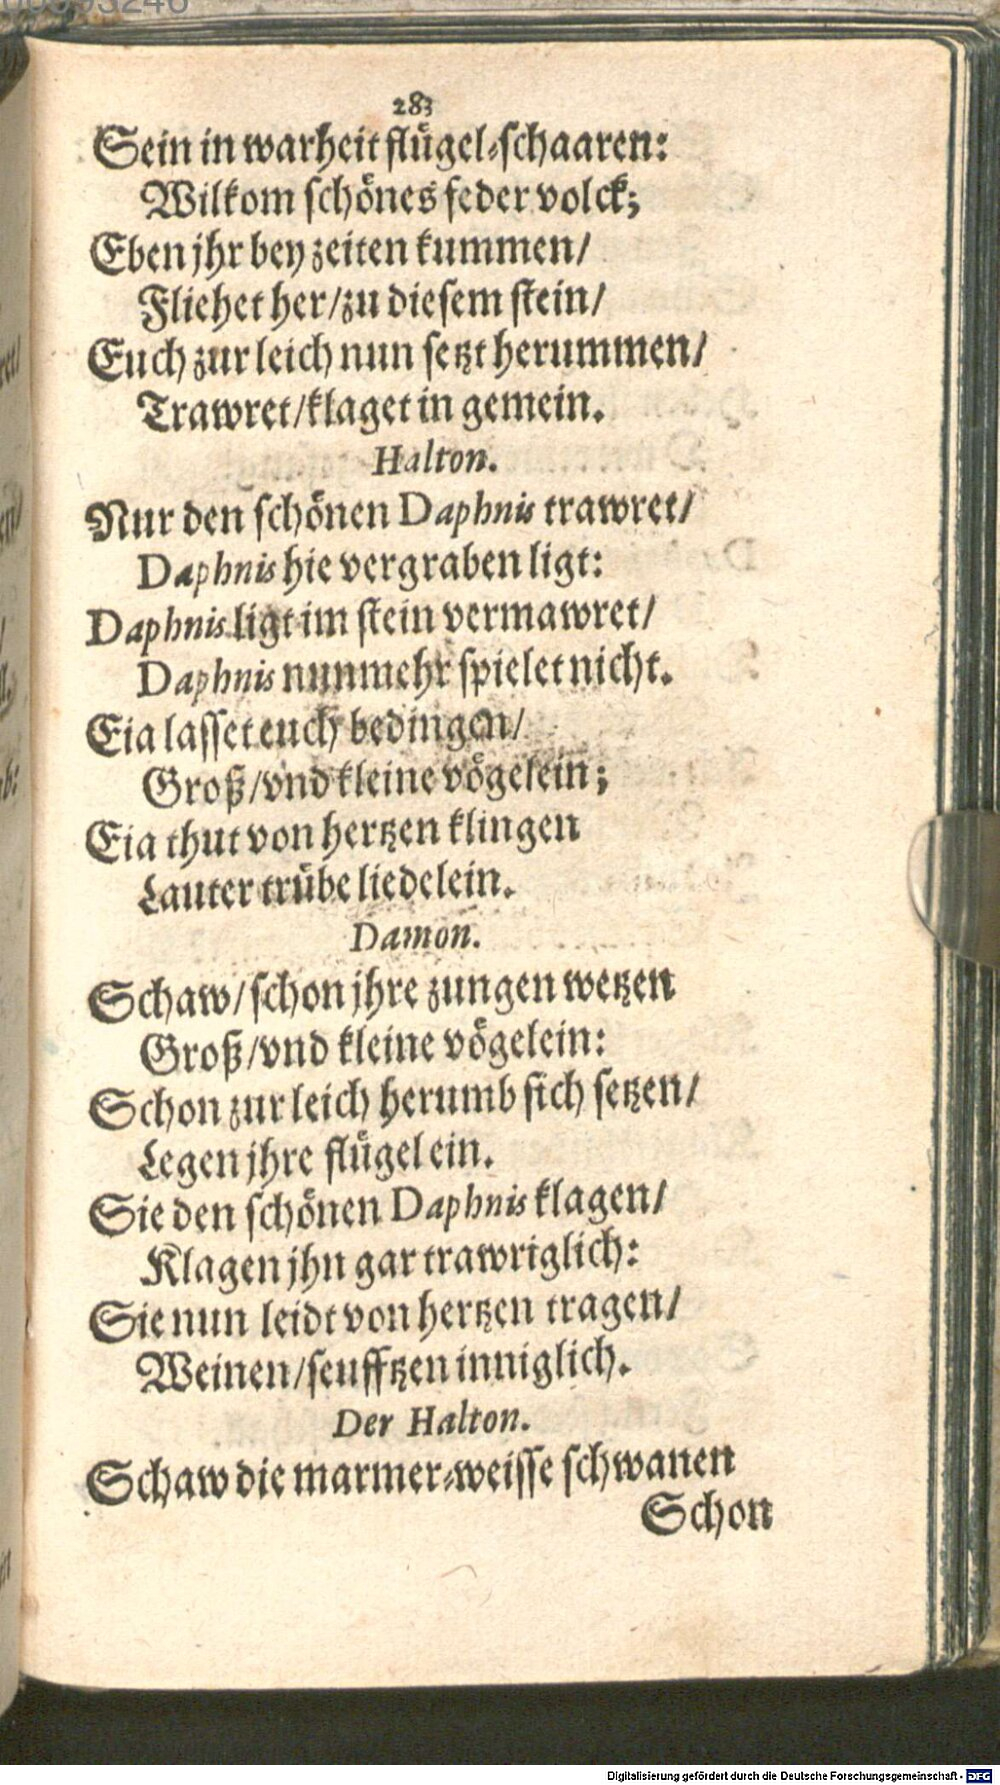 283
Sein in warheit flügel-schaaren:
Wilkom schönes feder volck;
Eben jhr bey zeiten kummen/
Fliehet her/zu diesem stein/
Euch zur leich nun setzt herummen/
Trawret/klaget in gemein.
Halton.
Nur den schönen Daphnis trawret/
Daphnis hie vergraben ligt:
Daphnis ligt im stein vermawret/
Daphnis nunmehr spielet nicht.
Eia lasset euch bedingen/
Groß/vnd kleine vögelein;
Eia thut von hertzen klingen
Lauter trübe liedelein.
Damon.
Schaw/schon jhre zungen wetzen
Groß/vnd kleine vögelein:
Schon zur leich herumb sich setzen/
Legen jhre flügel ein.
Sie den schönen Daphnis klagen/
Klagen jhn gar trawriglich:
Sie nun leidt von hertzen tragen/
Weinen/seufftzen inniglich.
Der Halton.
Schaw die marmer-weisse schwanen
Schon
Digitalisierung gefördert durch die Deutsche Forschungsgemeinschaft - DFG